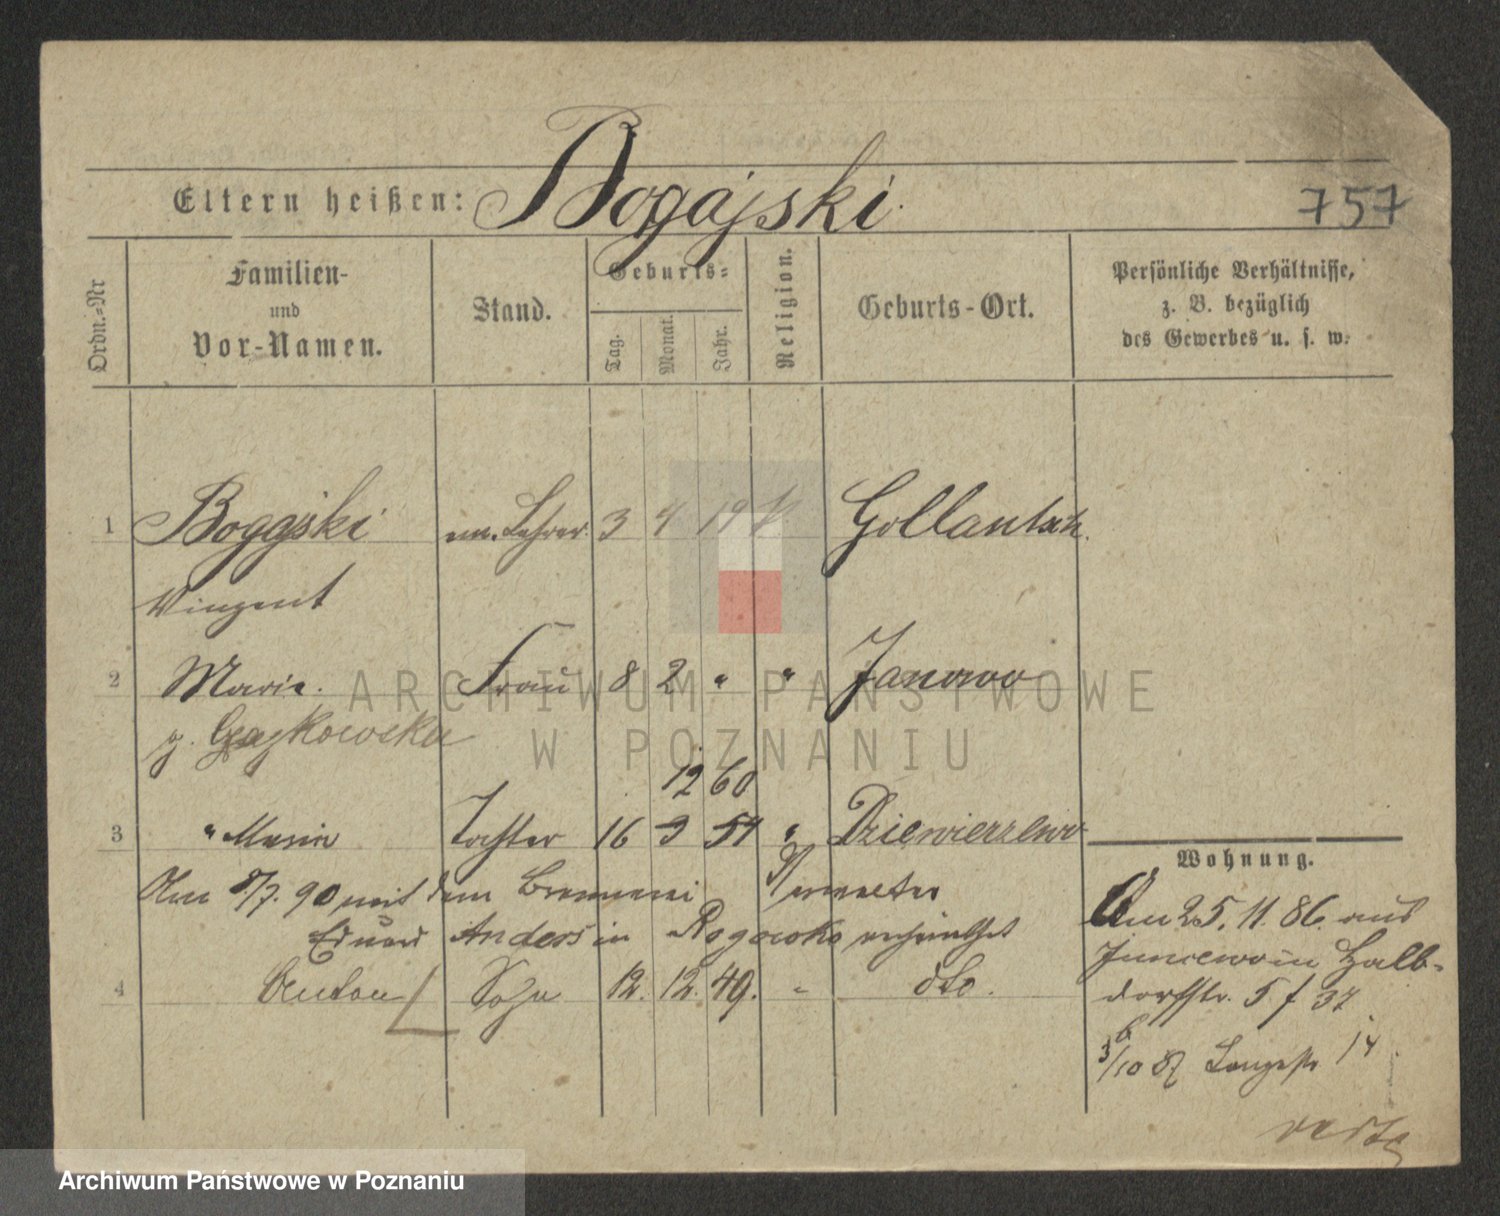 Eltern heißen: Bogajski
757
Ordn.-Nr
Familien- und Vor-Namen.
Stand.
Geburts-
Tag. Monat. Jahr.
Religion.
Geburts-Ort.
Persönliche Verhältnisse,
z. B. bezüglich
des Gewerbes u. s. w.
1 Bogajski Lehrer 3 4 19 k Gollantsch.
Vinzent
2 Marie. Frau 8 2 " " Janowo
g. Gajkowska
12 60
3 " Maria Tochter 16 3 51 " Dziewierzewo
Am 8/7. 90 mit dem Brennerei Verwalter
Eduard Anders in Rogowko verheirathet
4 Anton Sohn 12. 12. 49. " dto.
Wohnung.
Am 25. 11. 86. aus
Janowo in Halb-
dorfstr. 5 f 37
3/10 87 Langestr 14
ARCHIWUM PAŃSTWOWE
W POZNANIU
Archiwum Państwowe w Poznaniu